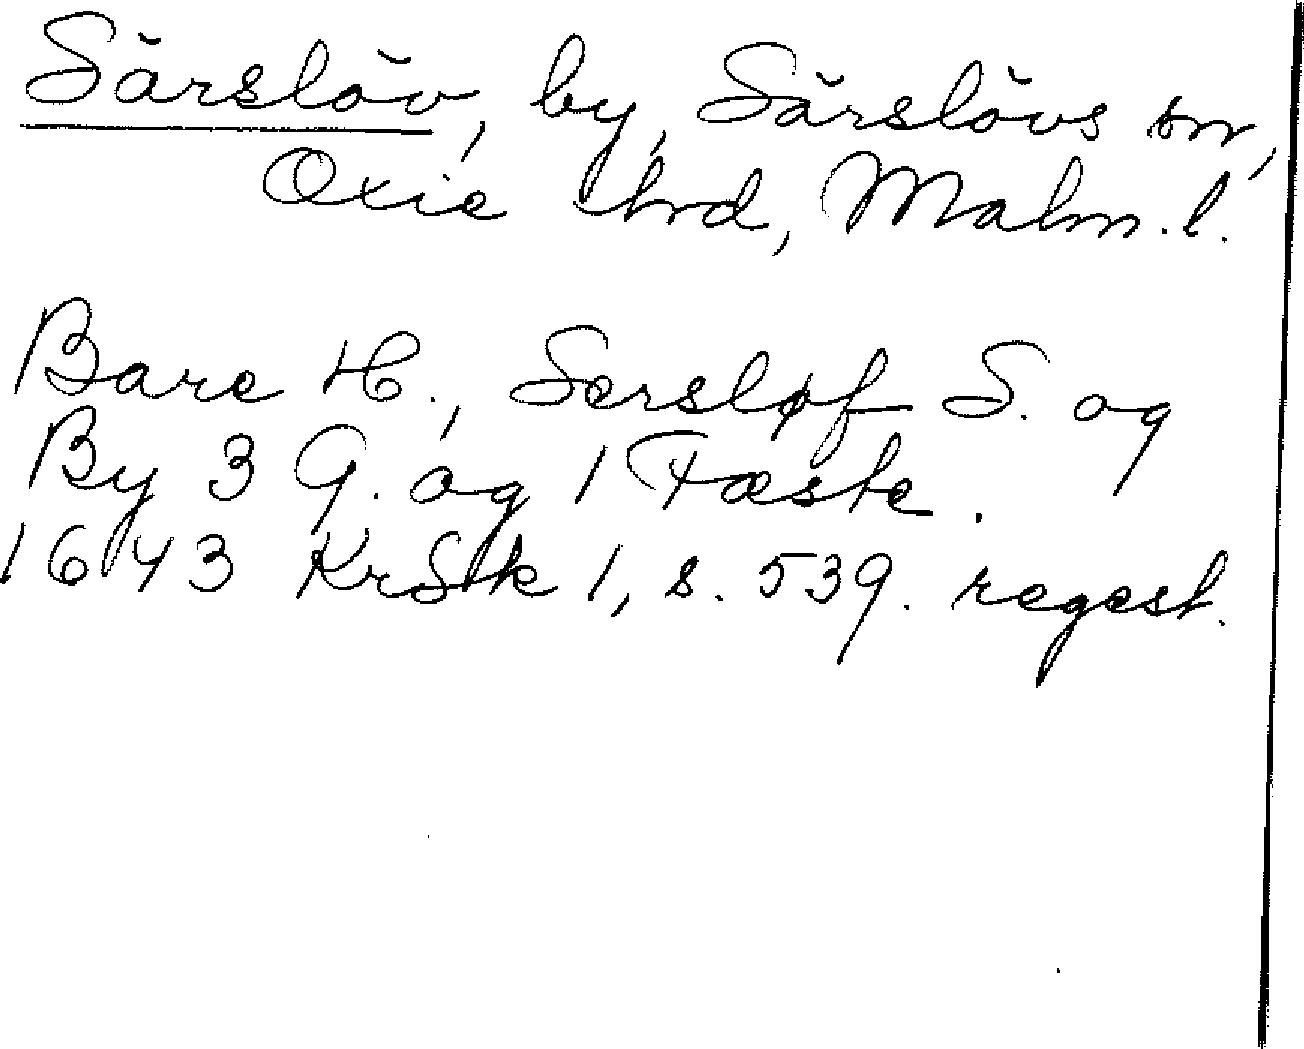 Särslöv, by, Särslövs sn,
Oxie hrd, Malm. l.
Bare H., Sersløf S. og
By 3 G. og 1 Fæste.
1643 KrSk 1, s. 539. regest.